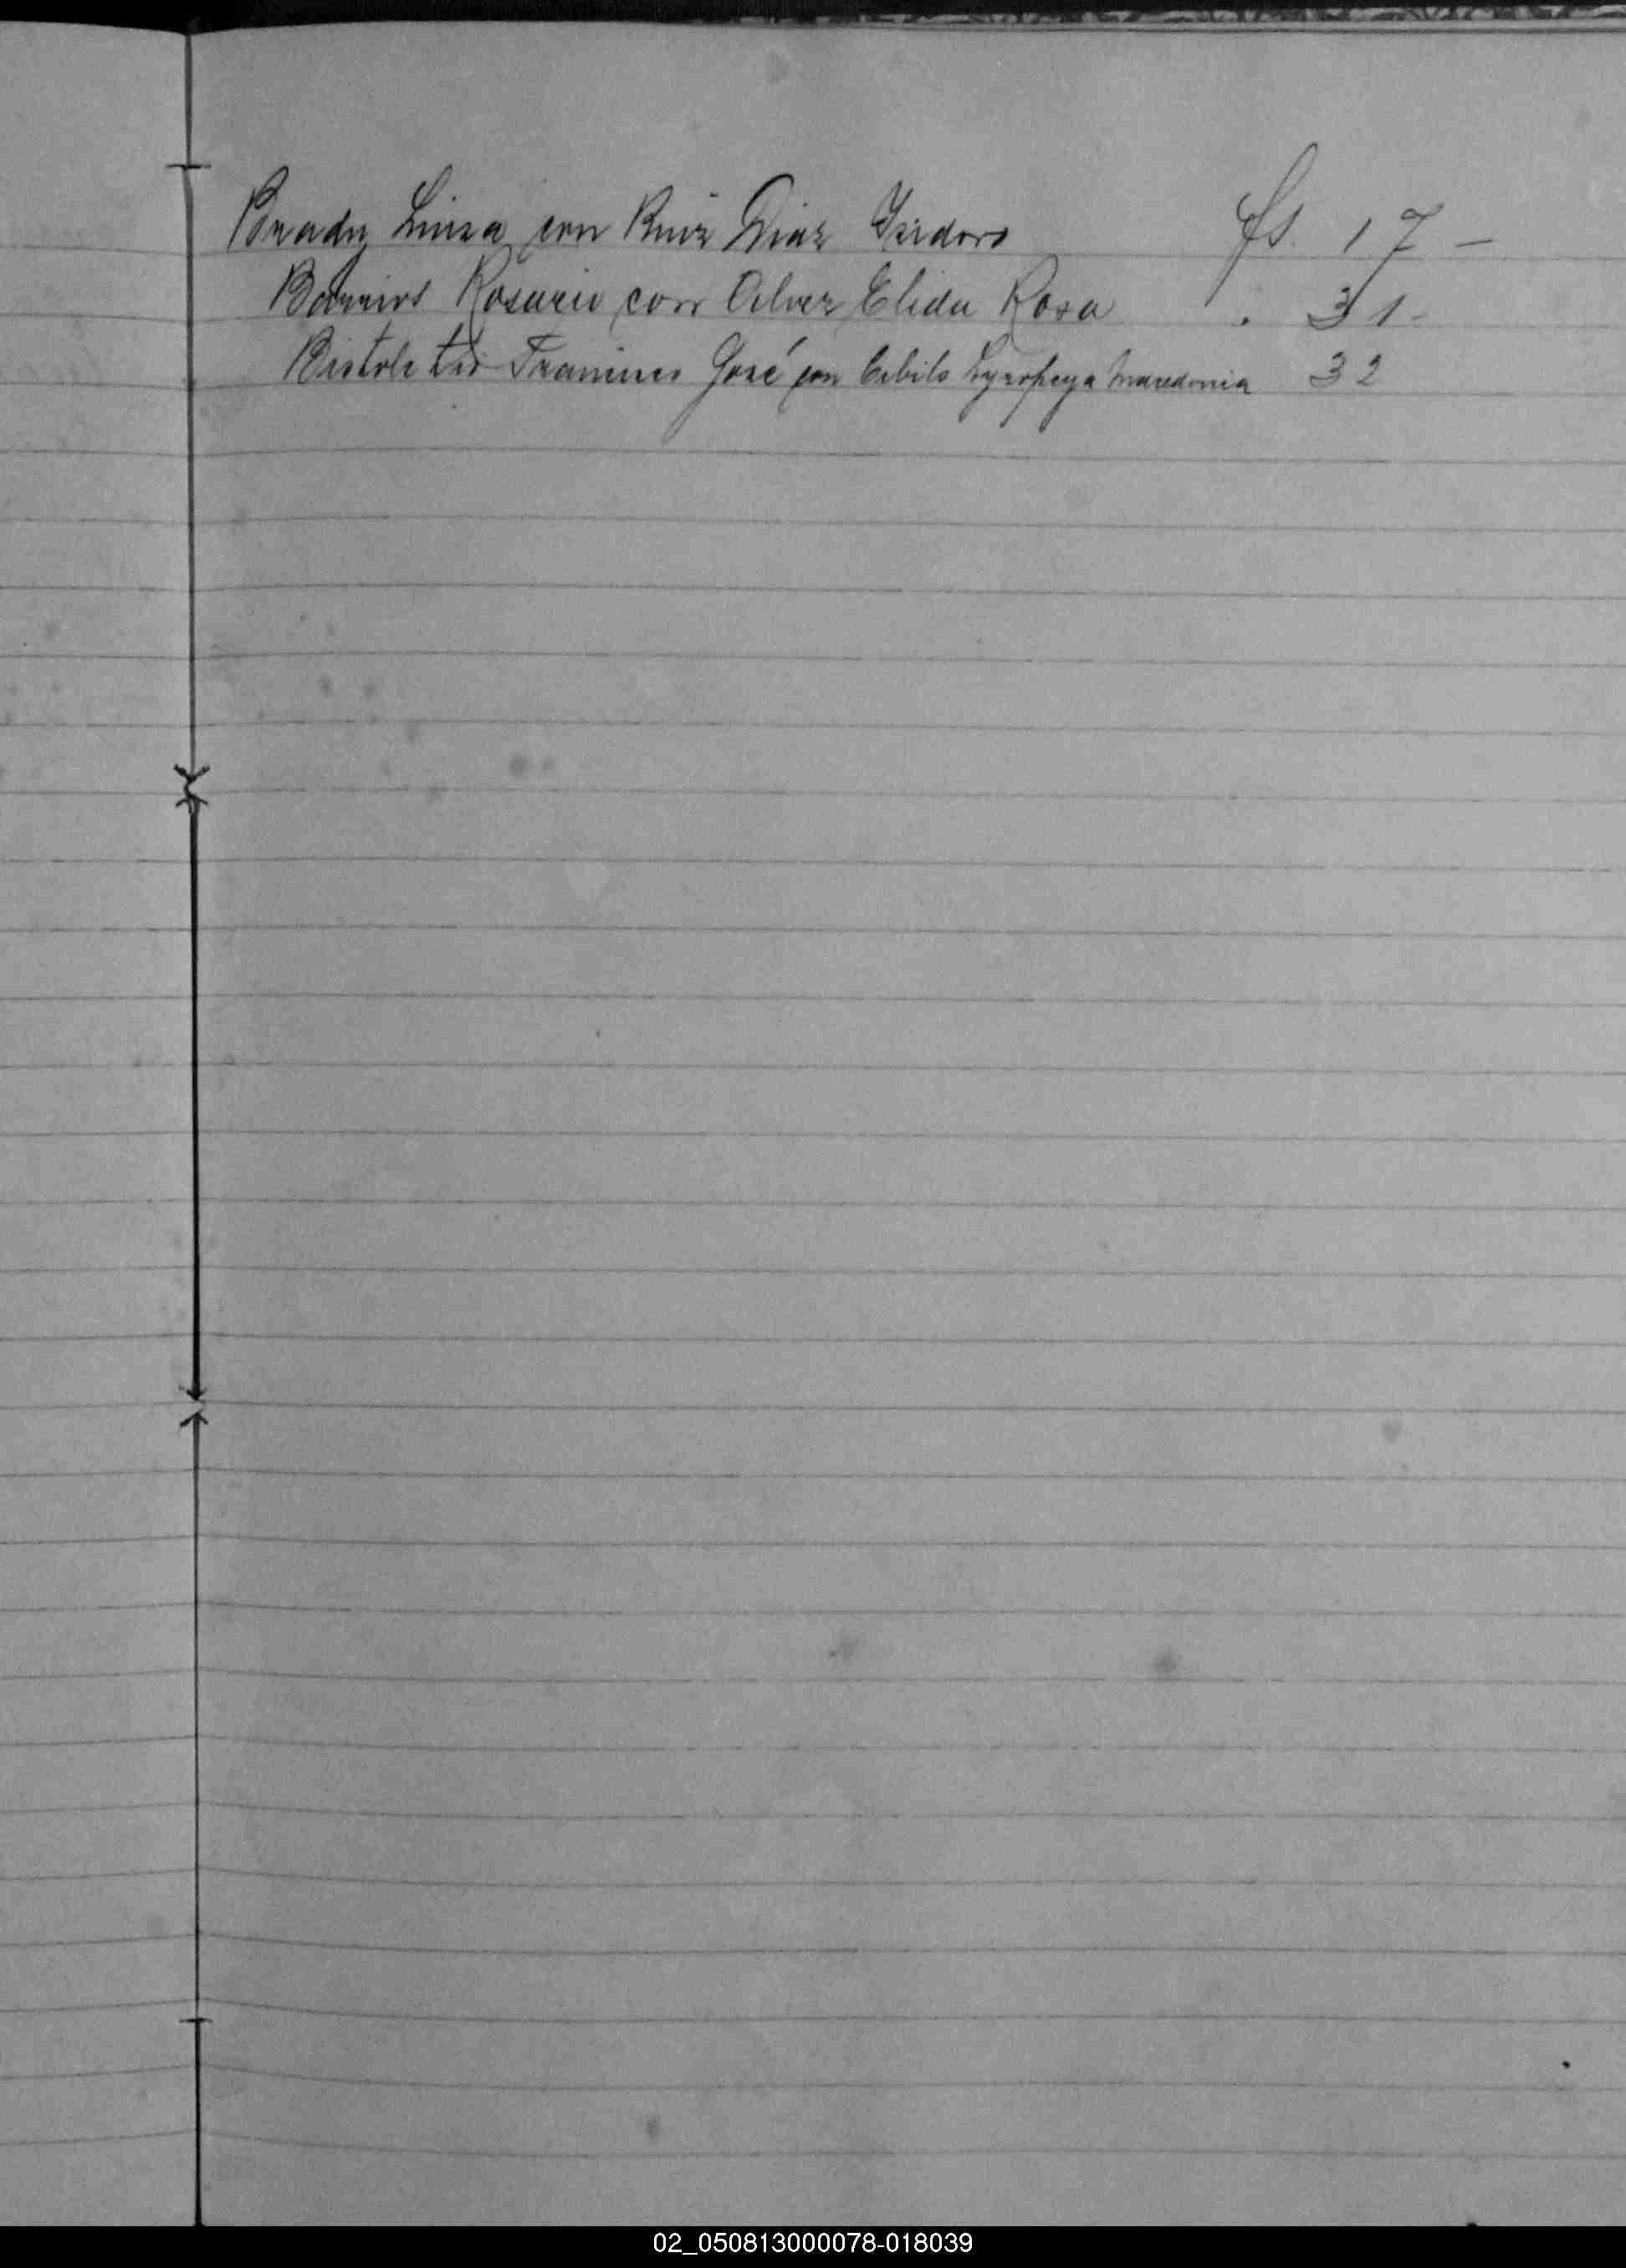 Brady Luisa con Ruiz Diaz Isidoro fs. 17 —
Barrios Rosario con Oliver Elida Rosa . 31 -
Bistoletti Francisco José con Cibils Lyropeya Macedonia 32
02_050813000078-018039